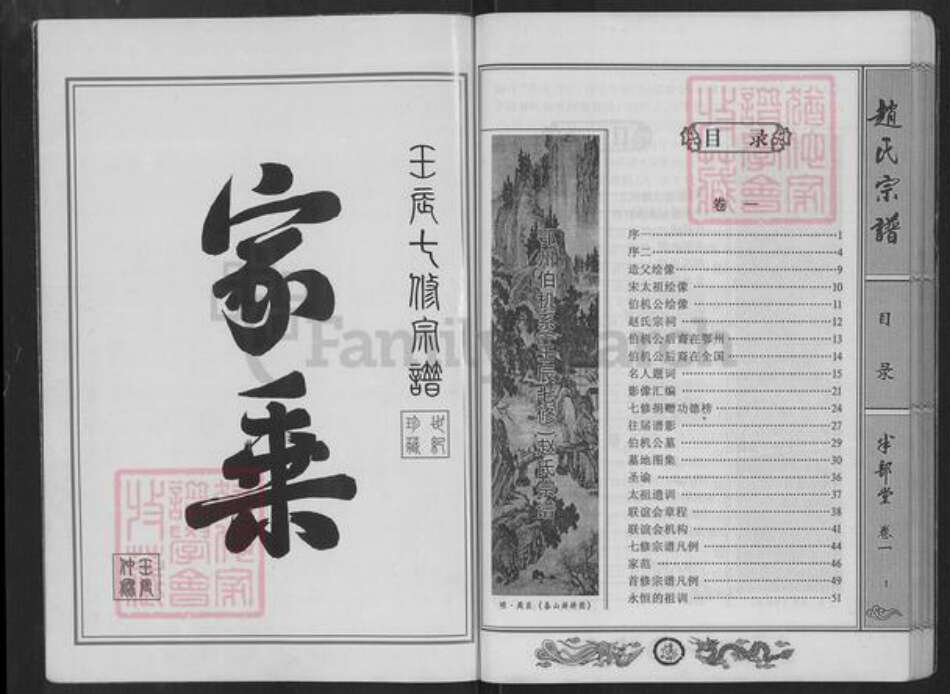 壬辰七修宗譜
世紀
珍藏
家乘
壬辰
仲
FamilySearch
目 录
卷 一
序一 1
序二 4
造父绘像 9
宋太祖绘像 10
伯机公绘像 11
赵氏宗祠 12
伯机公后裔在鄂州 13
伯机公后裔在全国 14
名人题词 15
影像汇编 21
七修捐赠功德榜 24
往届谱影 27
伯机公墓 29
墓地图集 30
圣谕 36
太祖遗训 37
联谊会章程 38
联谊会机构 41
七修宗谱凡例 44
家范 46
首修宗谱凡例 49
永恒的祖训 51
伯机系(壬辰七修)赵氏宗谱
趙氏宗譜
目录
半部堂 卷一
1